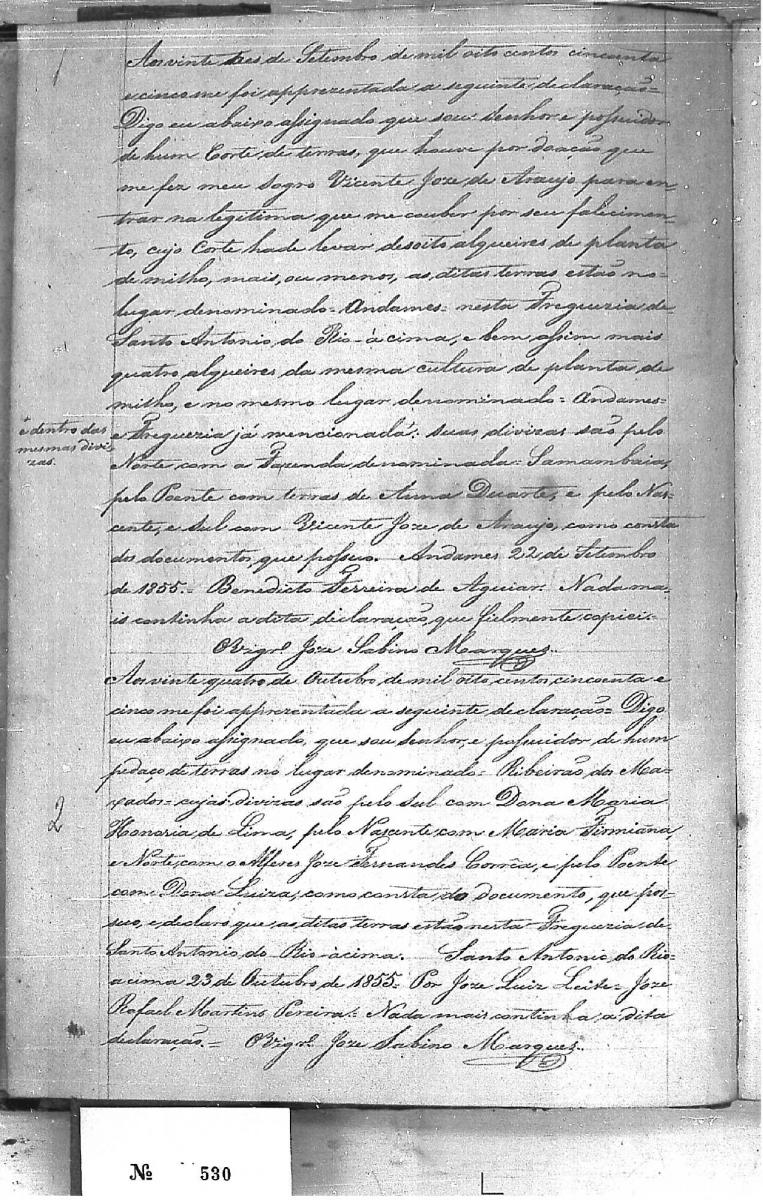 1
Aos vinte tres de Setembro de mil oito centos cincoenta
e cinco me foi apprezentada a seguinte declaração=
Digo eu abaixo assignado que sou Senhor e possuidor
de hum Corte de terras, que houve por doação que
me fez meu Sogro Vicente Joze de Araujo para en-
trar na legitima que me couber por seu falecimen-
to, cujo Corte hade levar desoito alqueires de planta
de milho, mais, ou menos, as ditas terras estão no
lugar denominado= Andames= nesta Freguezia de
Santo Antonio do Rio-acima, e bem assim mais
quatro alqueires da mesma cultura de planta de
milho, e no mesmo lugar denominado= Andames=
e dentro das
mesmas divi-
zas.
e Freguezia já mencionada: suas divizas são pelo
Norte com a Fazenda denominada Samambaia,
pelo Poente com terras de Anna Duarte, e pelo Nas-
cente, e Sul com Vicente Joze de Araujo, como consta
dos documentos, que possuo. Andames 22 de Setembro
de 1855.= Benedicto Ferreira de Aguiar. Nada ma-
is continha a dita declaração, que fielmente copiei.=
O Vigrº Joze Sabino Marques.
Aos vinte quatro de Outubro de mil oito centos, cincoenta e
cinco me foi apprezentada a seguinte declaração= Digo
eu abaixo assignado, que sou senhor, e possuidor de hum
pedaço de terras no lugar denominado= Ribeirão dos Ma-
xados= cujas divizas são pelo Sul com Dona Maria
2
Honoria de Lima, pelo Nascente com Maria Firmiana,
e Norte com o Alferes Joze Fernandes Corrêa, e pelo Poente
com Dona Luiza, como consta do documento, que pos-
suo, e declaro que, as ditas terras estão nesta Freguezia de
Santo Antonio do Rio-acima. Santo Antonio do Rio-
acima 23 de Outubro de 1855= Por Joze Luiz Leite= Joze
Rafael Martins Pereira= Nada mais continha a dita
declaração.= O Vigrº Joze Sabino Marques.
Nº 530